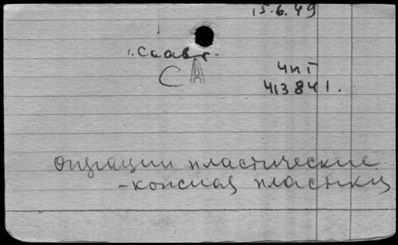 15.6.49
1. Славт.
СА
ЧпТ
413841.
операции пластические
- кожная пластика